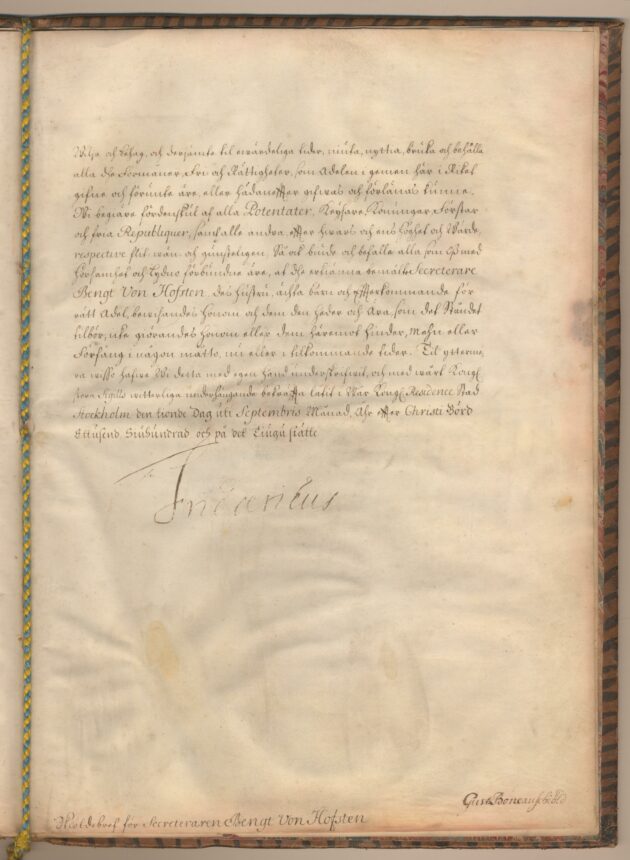 Wilja och behag, och derjämte til ewärdeliga tider, niuta, nyttia, bruka och behålla
alla the Förmåner, Fri och Rättigheter, som Adelen i gemen här i Riket
gifne och förunte äre, eller hädaneffter gifwas och förlänas kunne.
Wi begiäre fördenskul af alla Potentater, Keysare, Konungar, Förstar
och fria Republiquer, samt alle andra effter hwars och ens höghet och Wärde,
respective flit wän- och gunsteligen, Så ock biude och befalle alla som Oss med
hörsamhet och lydno förbundne äre, at the erkänna bemälte Secreterare
Bengt Von Hofsten, des hustru, ächta barn och effterkommande för
rätt Adel, bewisandes honom och dem den heder och Ära, som det Ståndet
tilhör, icke giörandes honom eller dem häremot hinder, Mehn eller
Förfång i någon måtto, nu eller i tilkommande tider. Til ytterme,
ra wisso hafwe Wi detta med egen hand underskrifwit, och med wårt Kongl
stora Sigills witterliga underhängande bekräffta låtit i Wår Kongl Residence Stad
Stockholm den tionde Dag uti Septembris Månad, Åhr effter Christi Börd
Ettusend Siuhundrad och på det Tiugu siätte
Fridericus
Gust Boneauschiöld
Skiöldebref för Secreteraren Bengt Von Hofsten